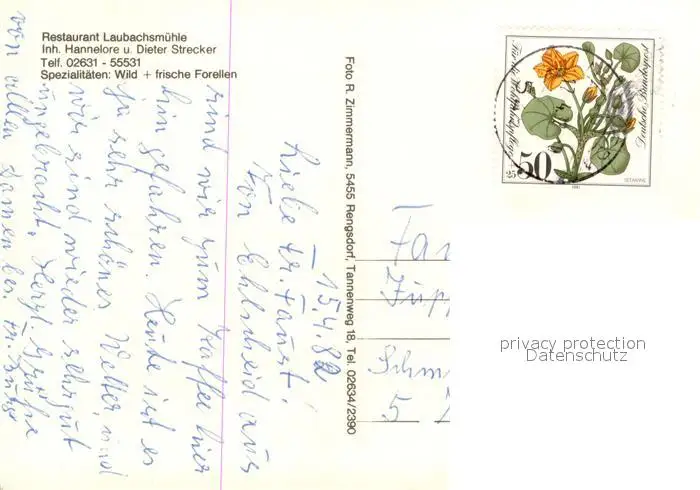 Restaurant Laubachsmühle
Inh. Hannelore u. Dieter Strecker
Telf. 02631 - 55531
Spezialitäten: Wild + frische Forellen
Foto R. Zimmermann, 5455 Rengsdorf, Tannenweg 18, Tel. 02634/2390
15.4.82
Liebe Fr. Faust!
Von Ehlscheid aus
sind wir zum Kaffee hier
hin gefahren. Heute ist es
ja sehr schönes Wetter, und
wir sind wieder sehr gut
Herzl. Grüße
von allen Damen bei Fr.
Fa
Schm
5
Für die Wohlfahrtspflege
Deutsche Bundespost
50
+25
1981
privacy protection
Datenschutz